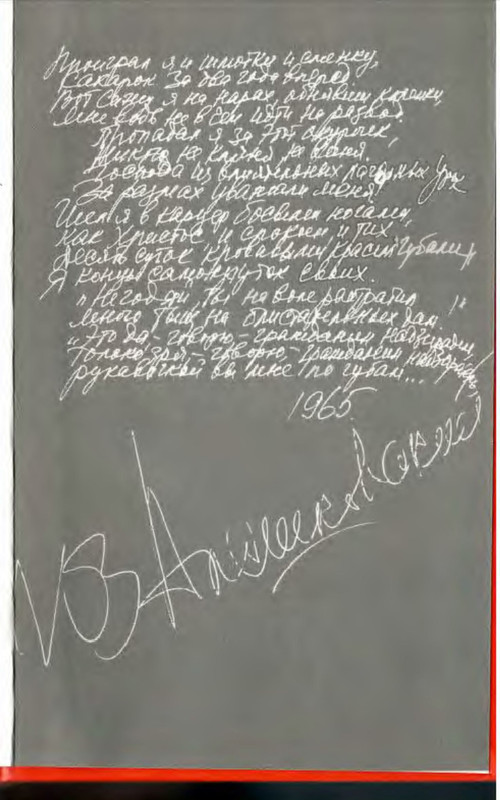 Проиграл я и шмотки и сменку,
Сахарок за два года вперед
Вот сижу я на нарах, обнявши коленки,
Мне ведь не в чем идти на развод.
Пропадал я за этот окурочек,
Никого не кляня, не виня.
Господа из влиятельных лагерных урок
За размах уважали меня.
Шел я в карцер босыми ногами,
Как Христос и спокоен и тих,
Десять суток кровавыми красил губами
Я концы самокруток своих.
"Негодяй, ты на воле растратил
Много тыщ на блистательных дам."
"Это да - говорю - гражданин надзиратель,
Только зря - говорю - гражданин надзиратель,
рукавичкой вы мне по губам...
1965